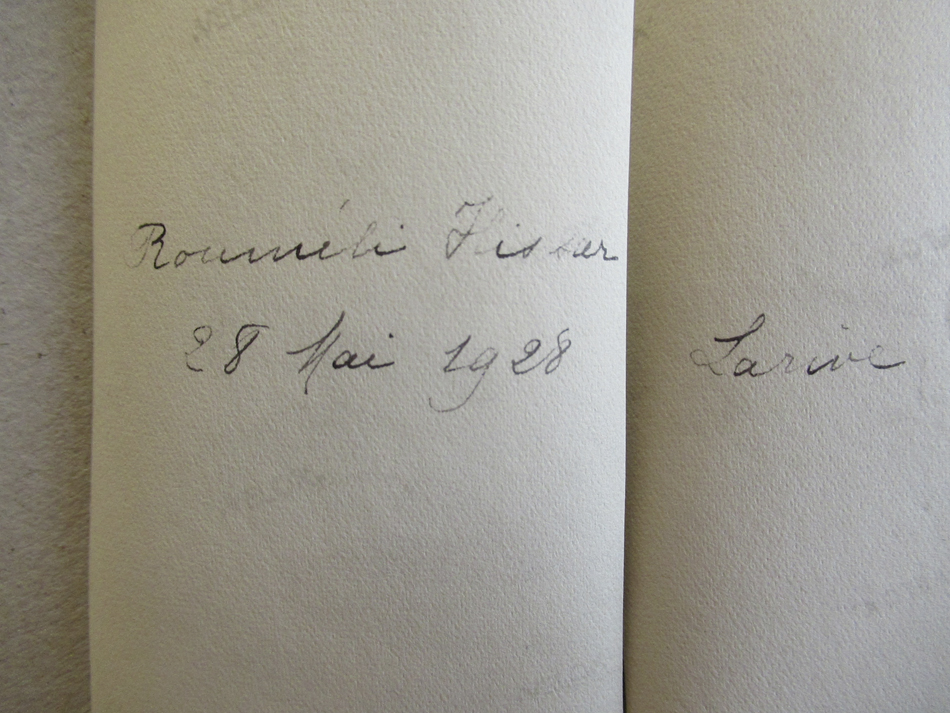 Rouméli Hissar
28 Mai 1928
Larive